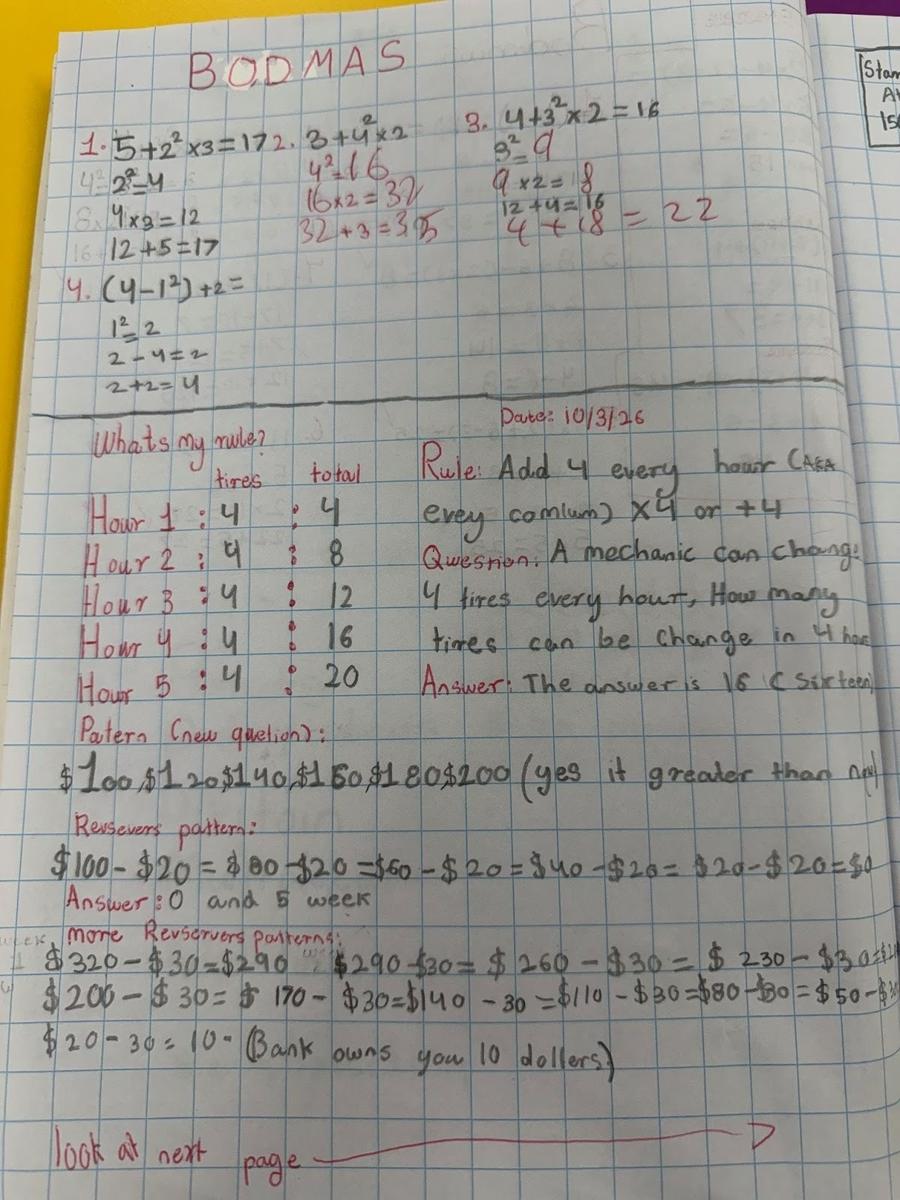 BODMAS
1. 5+2²×3=17
2²=4
4×3=12
12+5=17
2. 3+4²×2
4²=16
16×2=32
32+3=35
3. 4+3²×2=16
3²=9
9×2=18
12+4=16
4+18=22
4. (4-1²)+2=
1²=2
2-4=2
2+2=4
Date: 10/3/26
Whats my rule?
tires total
Hour 1 : 4 : 4
Hour 2 : 4 : 8
Hour 3 : 4 : 12
Hour 4 : 4 : 16
Hour 5 : 4 : 20
Rule: Add 4 every hour (AKA
evey comlum) ×4 or +4
Question: A mechanic can change
4 tires every hour, How many
tires can be change in 4
Answer: The answer is 16 (Sixteen)
Patern (new quetion):
$100,$120,$140,$160,$180$200 (yes it greater than
Revsevers pattern:
$100-$20=$80-$20=$60-$20=$40-$20=$20-$20=$0
Answer: 0 and 5 week
more Revservers patterns:
$320-$30=$290 $290-$30=$260-$30=$230-$30=
$200-$30=$170-$30=$140-30=$110-$30=$80-$30=$50-
$20-30=10-(Bank owns you 10 dollers)
look at next page